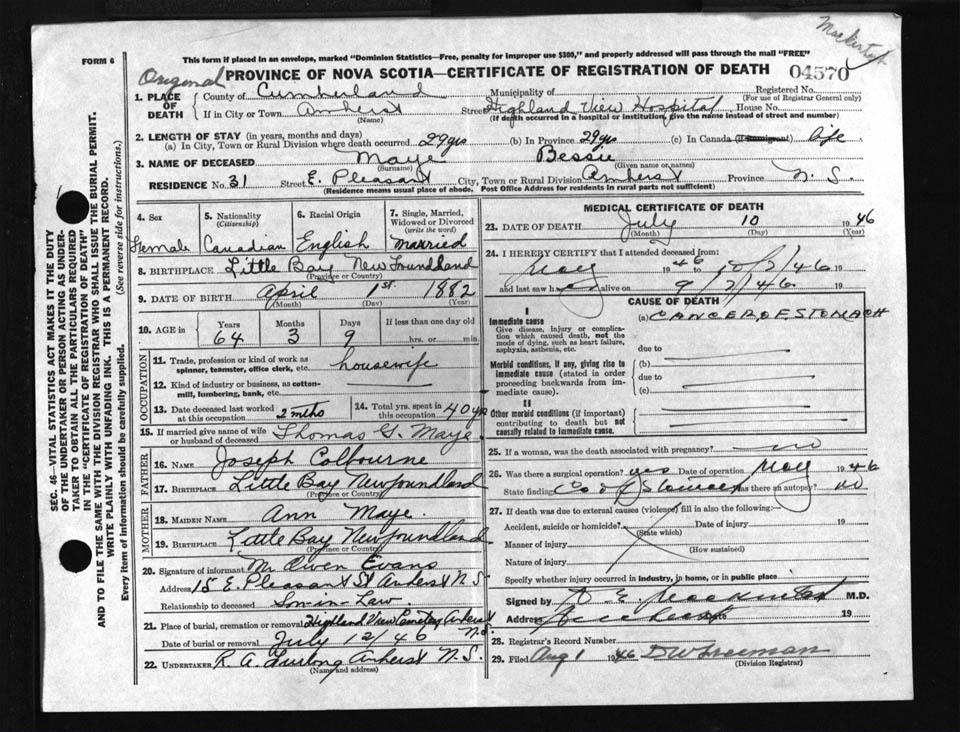 Mackintosh
FORM 6
This form if placed in an envelope, marked "Dominion Statistics—Free, penalty for improper use $300," and properly addressed will pass through the mail "FREE"
Original
PROVINCE OF NOVA SCOTIA—CERTIFICATE OF REGISTRATION OF DEATH
04570
1. PLACE OF DEATH
County of Cumberland Municipality of Registered No.
(For use of Registrar General only)
If in City or Town Amherst Street Highland View Hospital House No.
(Name) (If death occurred in a hospital or institution, give the name instead of street and number)
2. LENGTH OF STAY (in years, months and days)
(a) In City, Town or Rural Division where death occurred 29 yrs (b) In Province 29 yrs (c) In Canada (if immigrant) life
3. NAME OF DECEASED Maye Bessie
(Surname) (Given name or names)
RESIDENCE No. 31 Street E. Pleasant City, Town or Rural Division Amherst Province N. S.
(Residence means usual place of abode. Post Office Address for residents in rural parts not sufficient)
4. Sex 5. Nationality (Citizenship) 6. Racial Origin 7. Single, Married, Widowed or Divorced (write the word)
Female Canadian English Married
8. BIRTHPLACE Little Bay Newfoundland
(Province or Country)
9. DATE OF BIRTH April 1st. 1882
(Month) (Day) (Year)
10. AGE in Years Months Days If less than one day old
64 3 9 hrs. or min.
OCCUPATION
11. Trade, profession or kind of work as spinner, teamster, office clerk, etc. housewife
12. Kind of industry or business, as cotton-mill, lumbering, bank, etc.
13. Date deceased last worked at this occupation 2 mths 14. Total yrs. spent in this occupation 40 yrs
15. If married give name of wife or husband of deceased Thomas G. Maye
FATHER
16. NAME Joseph Colbourne
17. BIRTHPLACE Little Bay Newfoundland
(Province or Country)
MOTHER
18. MAIDEN NAME Ann Maye
19. BIRTHPLACE Little Bay Newfoundland
(Province or Country)
20. Signature of informant Mr. Owen Evans
Address 15 E. Pleasant St Amherst N.S.
Relationship to deceased Son-in-Law
21. Place of burial, cremation or removal Highland View Cemetery Amherst N.S.
Date of burial or removal July 12/46
22. UNDERTAKER R. A. Furlong Amherst N.S.
(Name and address)
MEDICAL CERTIFICATE OF DEATH
23. DATE OF DEATH July 10 1946
(Month) (Day) (Year)
24. I HEREBY CERTIFY that I attended deceased from:
May 1946 to 10/7/46 19
and last saw h alive on 9/7/46 19
CAUSE OF DEATH
I
Immediate cause
Give disease, injury or complication which caused death, not the mode of dying, such as heart failure, asphyxia, asthenia, etc.
(a) CANCER OF STOMACH
due to
Morbid conditions, if any, giving rise to immediate cause (stated in order proceeding backwards from immediate cause).
(b)
due to
(c)
II
Other morbid conditions (if important) contributing to death but not causally related to immediate cause.
25. If a woman, was the death associated with pregnancy? no
26. Was there a surgical operation? yes Date of operation May 1946
State finding Ca of Stomach Was there an autopsy? no
27. If death was due to external causes (violence) fill in also the following:—
Accident, suicide or homicide? Date of injury 19
(State which)
Manner of injury
(How sustained)
Nature of injury
Specify whether injury occurred in industry, in home, or in public place
Signed by D. E. Mackintosh M.D.
Address Amherst Date 19
28. Registrar's Record Number
29. Filed Aug 1 1946 D W Freeman
(Division Registrar)
SEC. 46—VITAL STATISTICS ACT MAKES IT THE DUTY
OF THE UNDERTAKER OR PERSON ACTING AS UNDER-
TAKER TO OBTAIN ALL THE PARTICULARS REQUIRED
IN THE "CERTIFICATE OF REGISTRATION OF DEATH"
AND TO FILE THE SAME WITH THE DIVISION REGISTRAR WHO SHALL ISSUE THE BURIAL PERMIT.
WRITE PLAINLY WITH UNFADING INK. THIS IS A PERMANENT RECORD.
Every item of information should be carefully supplied. (See reverse side for instructions.)